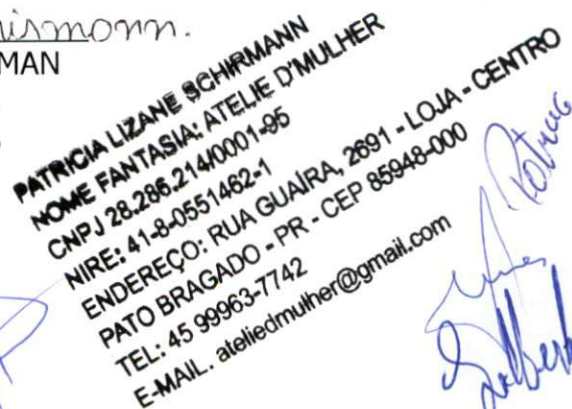 MAN
PATRICIA LIZANE SCHIRMANN
NOME FANTASIA: ATELIE D'MULHER
CNPJ 28.286.214/0001-95
NIRE: 41-8-0551462-1
ENDEREÇO: RUA GUAÍRA, 2691 - LOJA - CENTRO
PATO BRAGADO - PR - CEP 85948-000
TEL: 45 99963-7742
E-MAIL. ateliedmulher@gmail.com